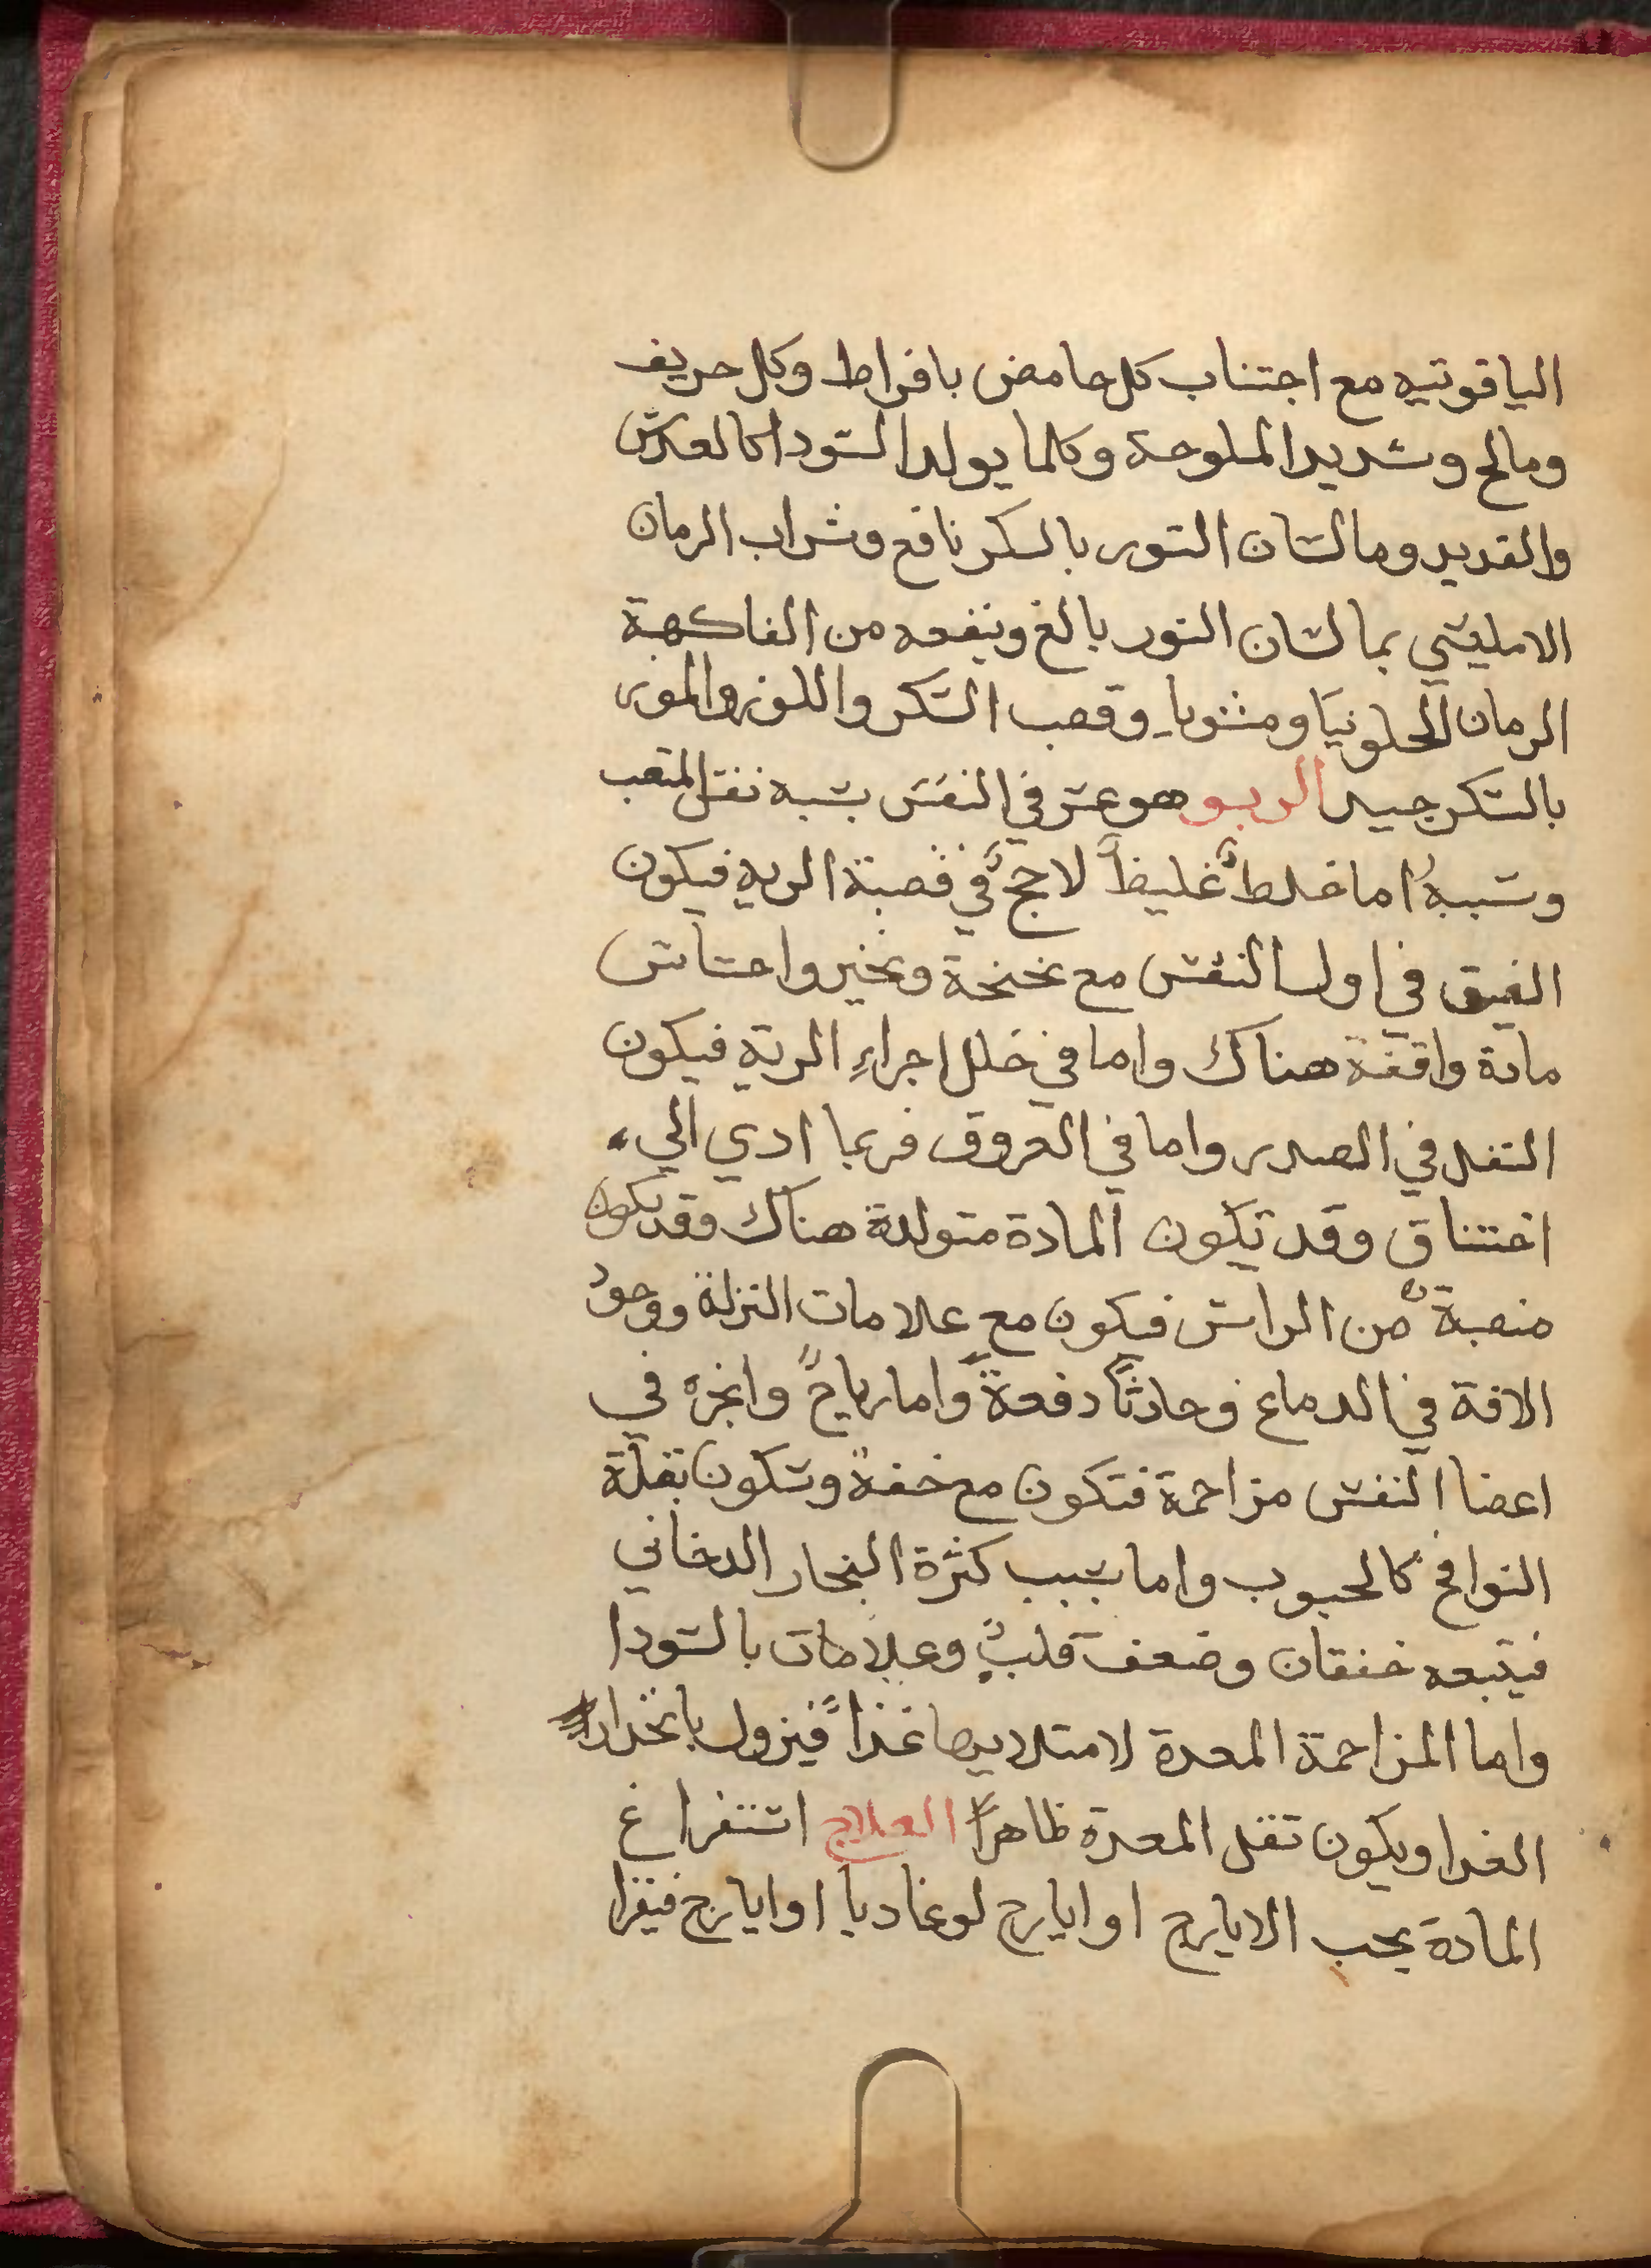 الياقوتيه مع اجتناب كل حامض بافراط وكل حريف
ومالح وشديد الملوحة وكلما يولد السودا كالعدس
والقديد وما لسان الثور بالسكر نافع وشراب الرمان
الامليسي بما لسان الثور بالغ وينفعه من الفاكهة
الرمان الحلو نيا ومشويا وقصب السكر واللوز والموز
بالسكر جيد الربو هو عسر في النفس يشبه نفس المتعب
وسببه اما خلط غليظ لاحج في قصبة الريه فيكون
الضيق في اول النفس مع نخنخة ونخير واحساس
مادة واقفة هناك واما في خلل اجراء الرية فيكون
الثقل في الصدر واما في العروق فربما ادي الي
اختناق وقد تكون المادة متولدة هناك وقد يكون
منصبة من الراس فيكون مع علامات النزلة ووجود
الافة في الدماغ وحادثا دفعة واما رياح وابخره في
اعضا النفس مزاحمة فتكون مع خفة وتكون بقلة
النوافخ كالحبوب واما بسبب كثرة البخار الدخاني
فيتبعه خفقان وضعف قلب وعلامات بالسودا
واما المزاحمة المعدة لامتلايها غذا فيزول بانحدار
الغدا ويكون ثقل المعدة ظاهرا العلاج استفراغ
المادة بحب الايارج او ايارج لوغاديا او ايارج فيقرا